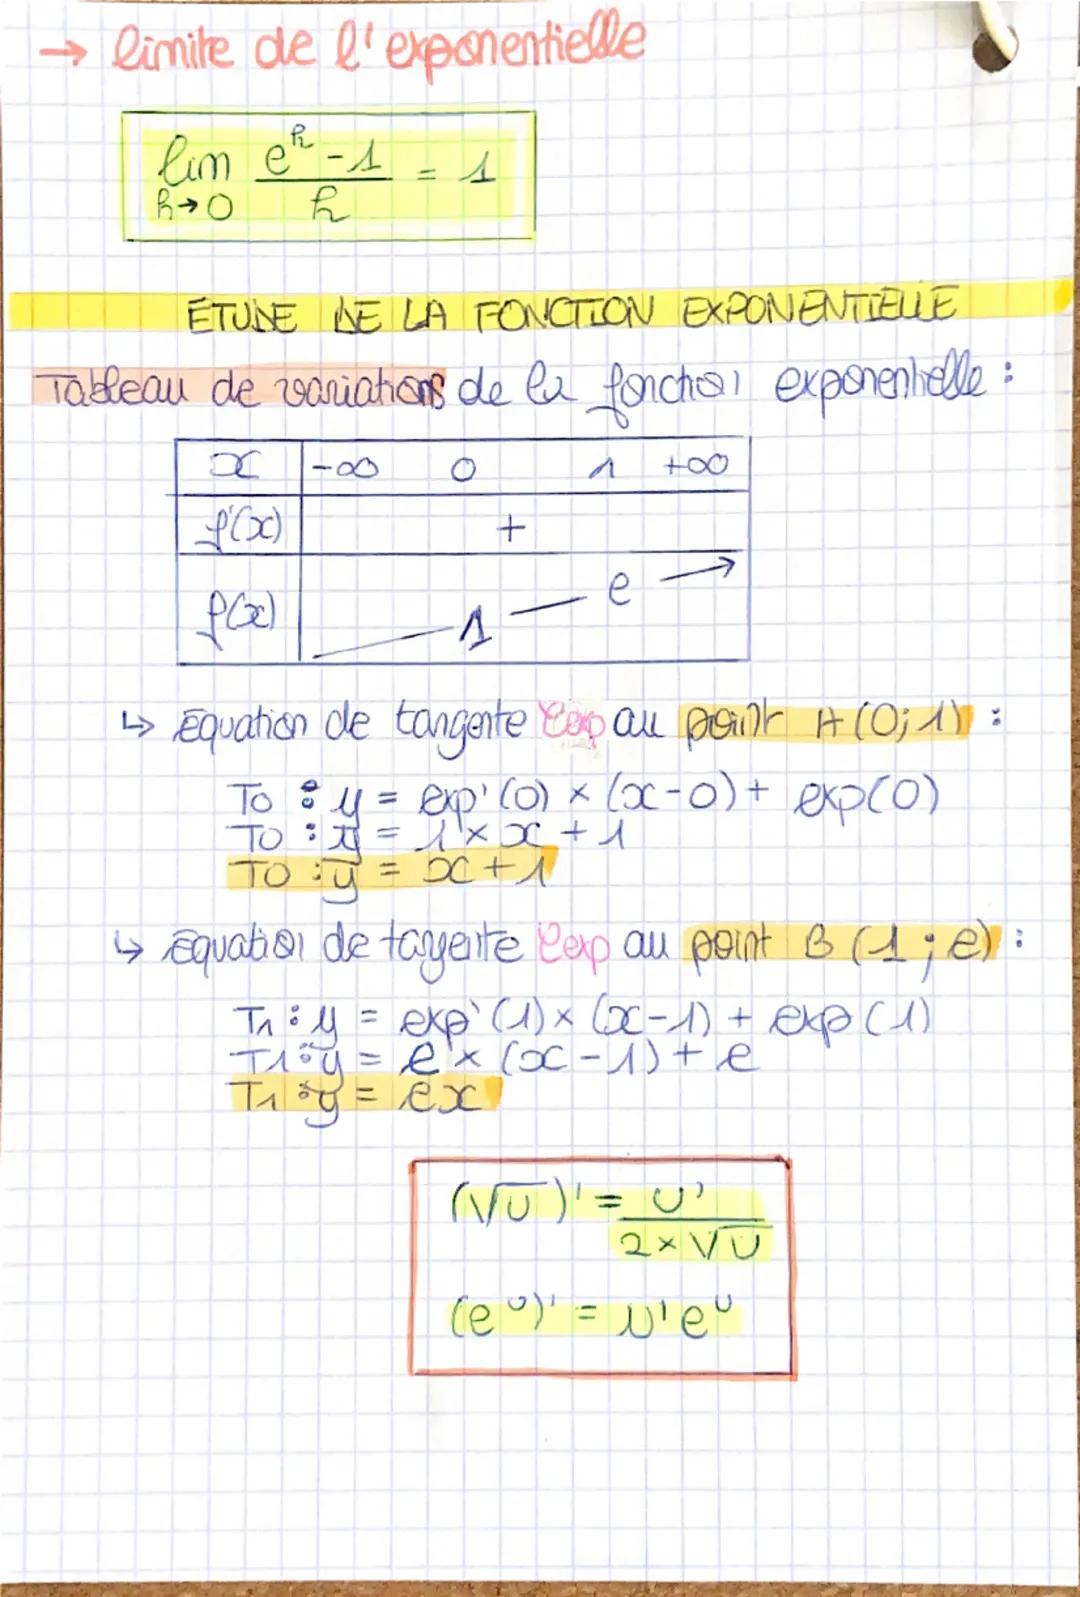 → limite de l'exponentielle
lim h→0 (e^h - 1)/h = 1
ÉTUDE DE LA FONCTION EXPONENTIELLE
Tableau de variations de la fonction exponentielle :
x -∞ 0 1 +∞
f'(x) +
f(x) 1 e
↳ Équation de tangente Cexp au point A (0; 1) :
T0 : y = exp'(0) × (x-0) + exp(0)
T0 : y = 1 × x + 1
T0 : y = x + 1
↳ équation de tangente Cexp au point B (1 ; e) :
T1 : y = exp'(1) × (x-1) + exp(1)
T1 : y = e × (x-1) + e
T1 : y = ex
(√U)' = U'/(2×√U)
(e^U)' = U'e^U